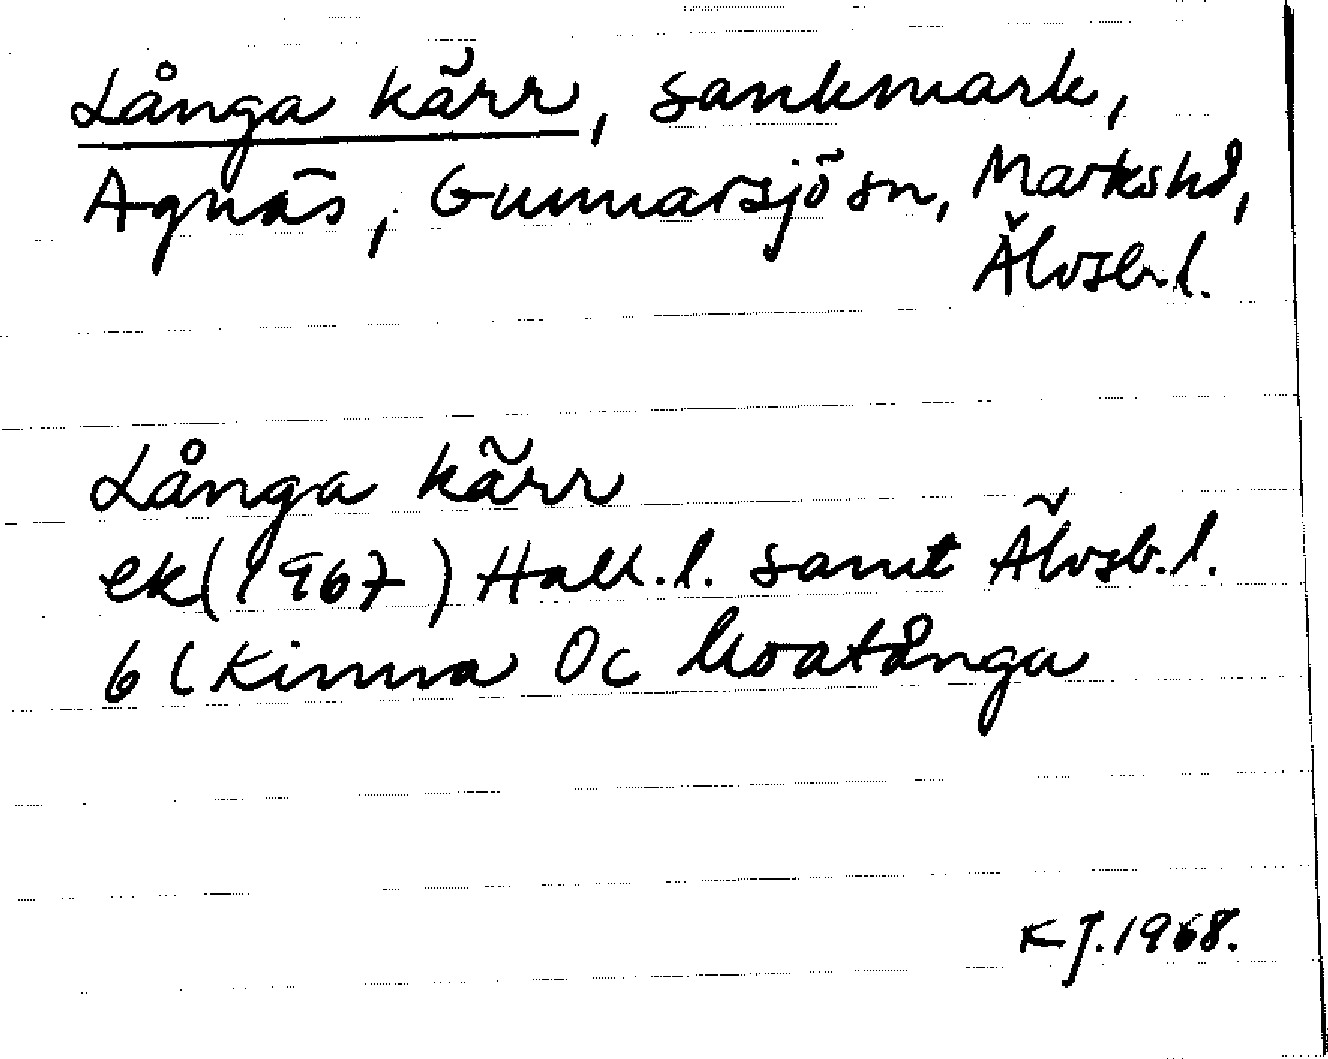 Långa kärr, sankmark,
Agnäs, Gunnarsjö sn, Marks hd,
Älvsb. l.
Långa kärr
ek (1967) Hall. l. samt Älvsb. l.
6 l Kinna 0c
KJ. 1968.